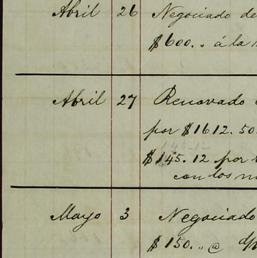 Abril 26 Negociado de
$600.. á la
Abril 27 Renovado
por $1612.50
$145.12 por
con los
Mayo 3 Negociado
$150.. @